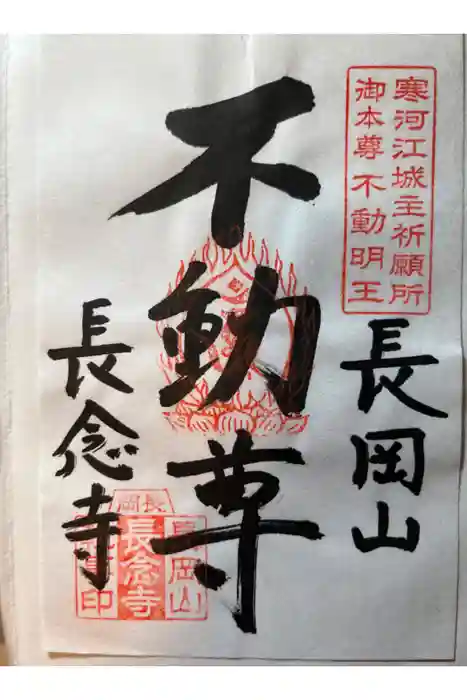 寒河江城主祈願所
御本尊不動明王
長岡山
不動尊
長念寺
長岡
長岡山
長念寺
印